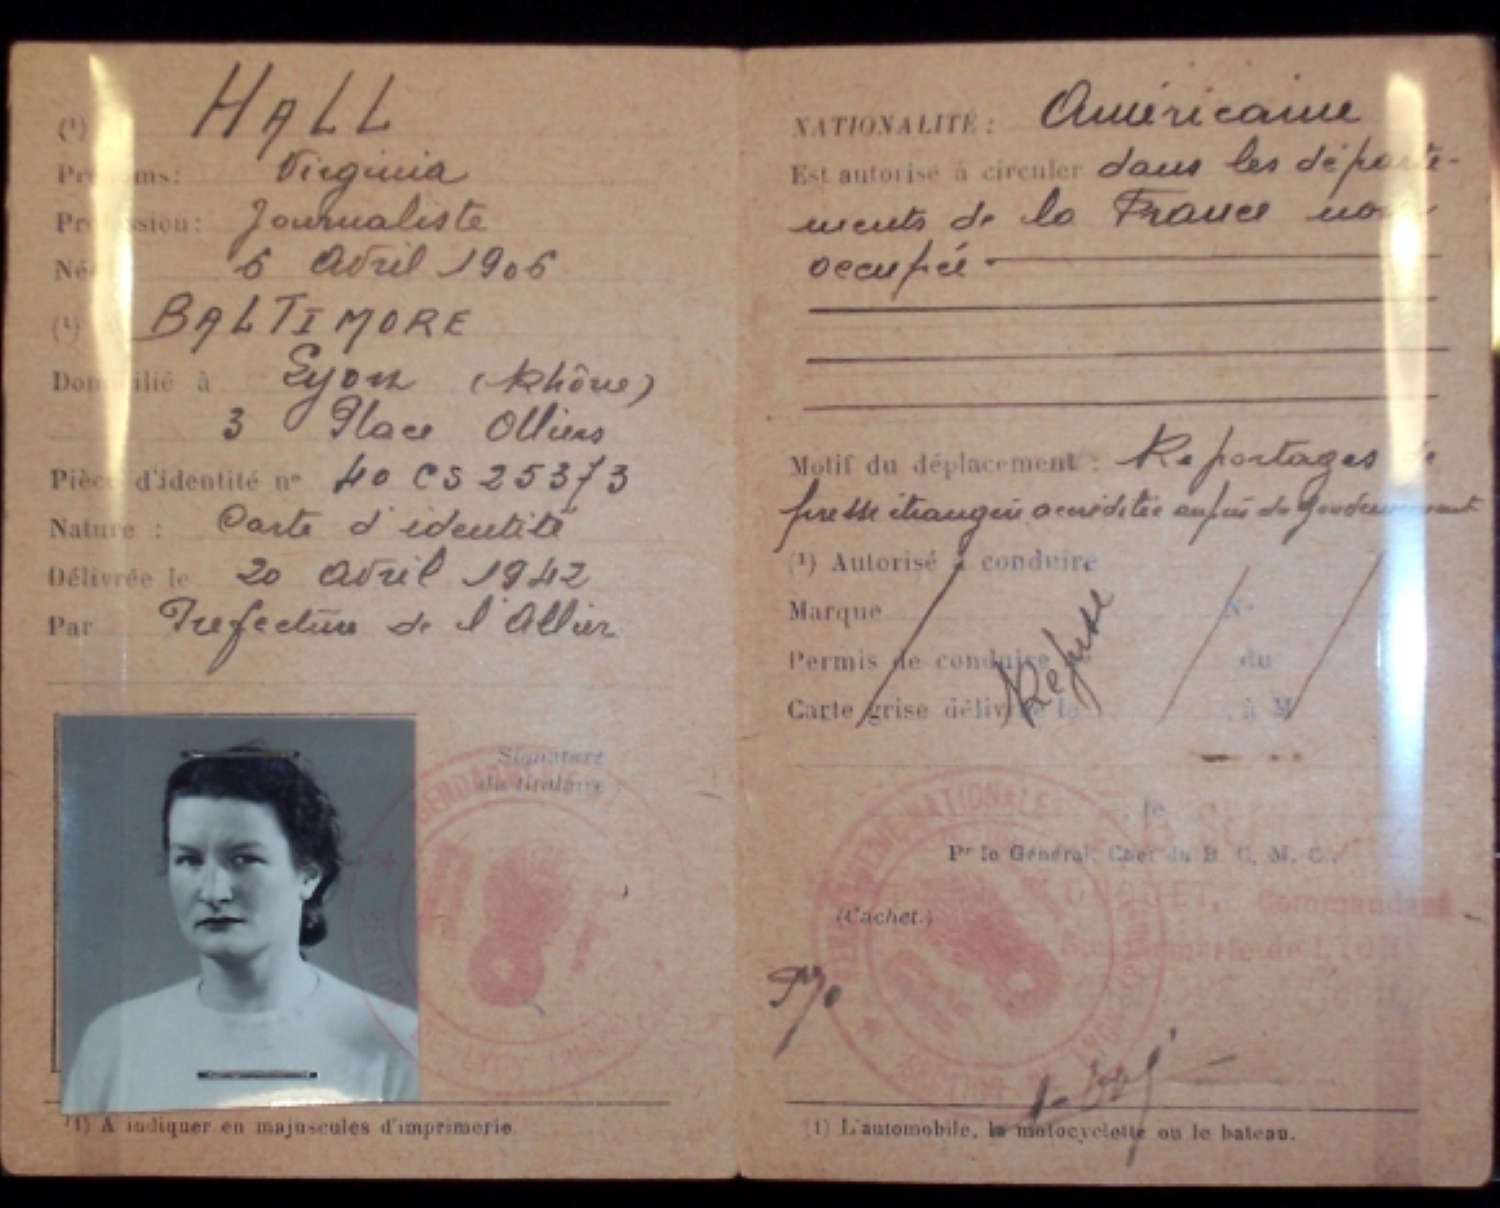 (1) HALL
Prénoms: Virginia
Profession: Journaliste
Né 6 Avril 1906
(1) BALTIMORE
Domicilié à Lyon (Rhône)
3 Place Olliers
Pièce d'identité nº 40 CS 25373
Nature : Carte d'identité
Délivrée le 20 Avril 1942
Par Prefecture de l'Allier
Signature
du titulaire :
(1) A indiquer en majuscules d'imprimerie.
NATIONALITÉ : Américaine
Est autorisé à circuler dans les départe-
ments de la France non
occupée
Motif du déplacement : Reportages de
presse étrangère accréditée auprès du Gouvernement
(1) Autorisé à conduire
Marque Nº
Permis de conduire du
Carte grise délivrée le à M
Refusé
GENDARMERIE NATIONALE
, le
SEPT
Pr le Général, Chef du B. C. M. C.,
Commandant
(Cachet.)
Gendarmerie de LYON
(1) L'automobile, la motocyclette ou le bateau.